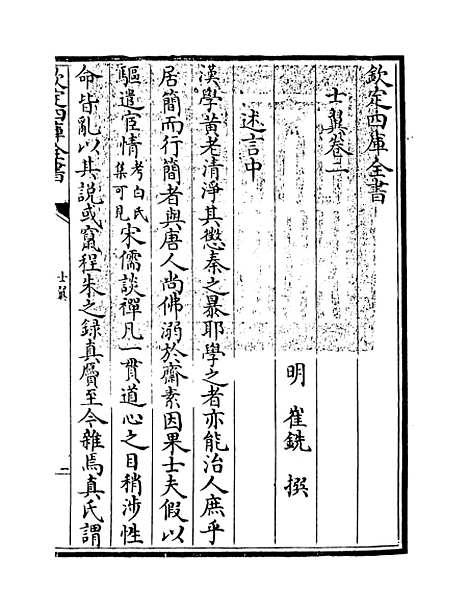 欽定四庫全書
士翼卷二
明 崔銑 撰
述言中
漢學黃老清淨其懲秦之暴耶學之者亦能治人庶乎
居簡而行簡者與唐人尚佛溺於齋素因果士夫假以
驅遣宦情考白氏集可見宋儒談禪凡一貫道心之目稍涉性
命皆亂以其説或竄程朱之録真贗至今雜焉真氏謂
欽定四庫全書
士翼